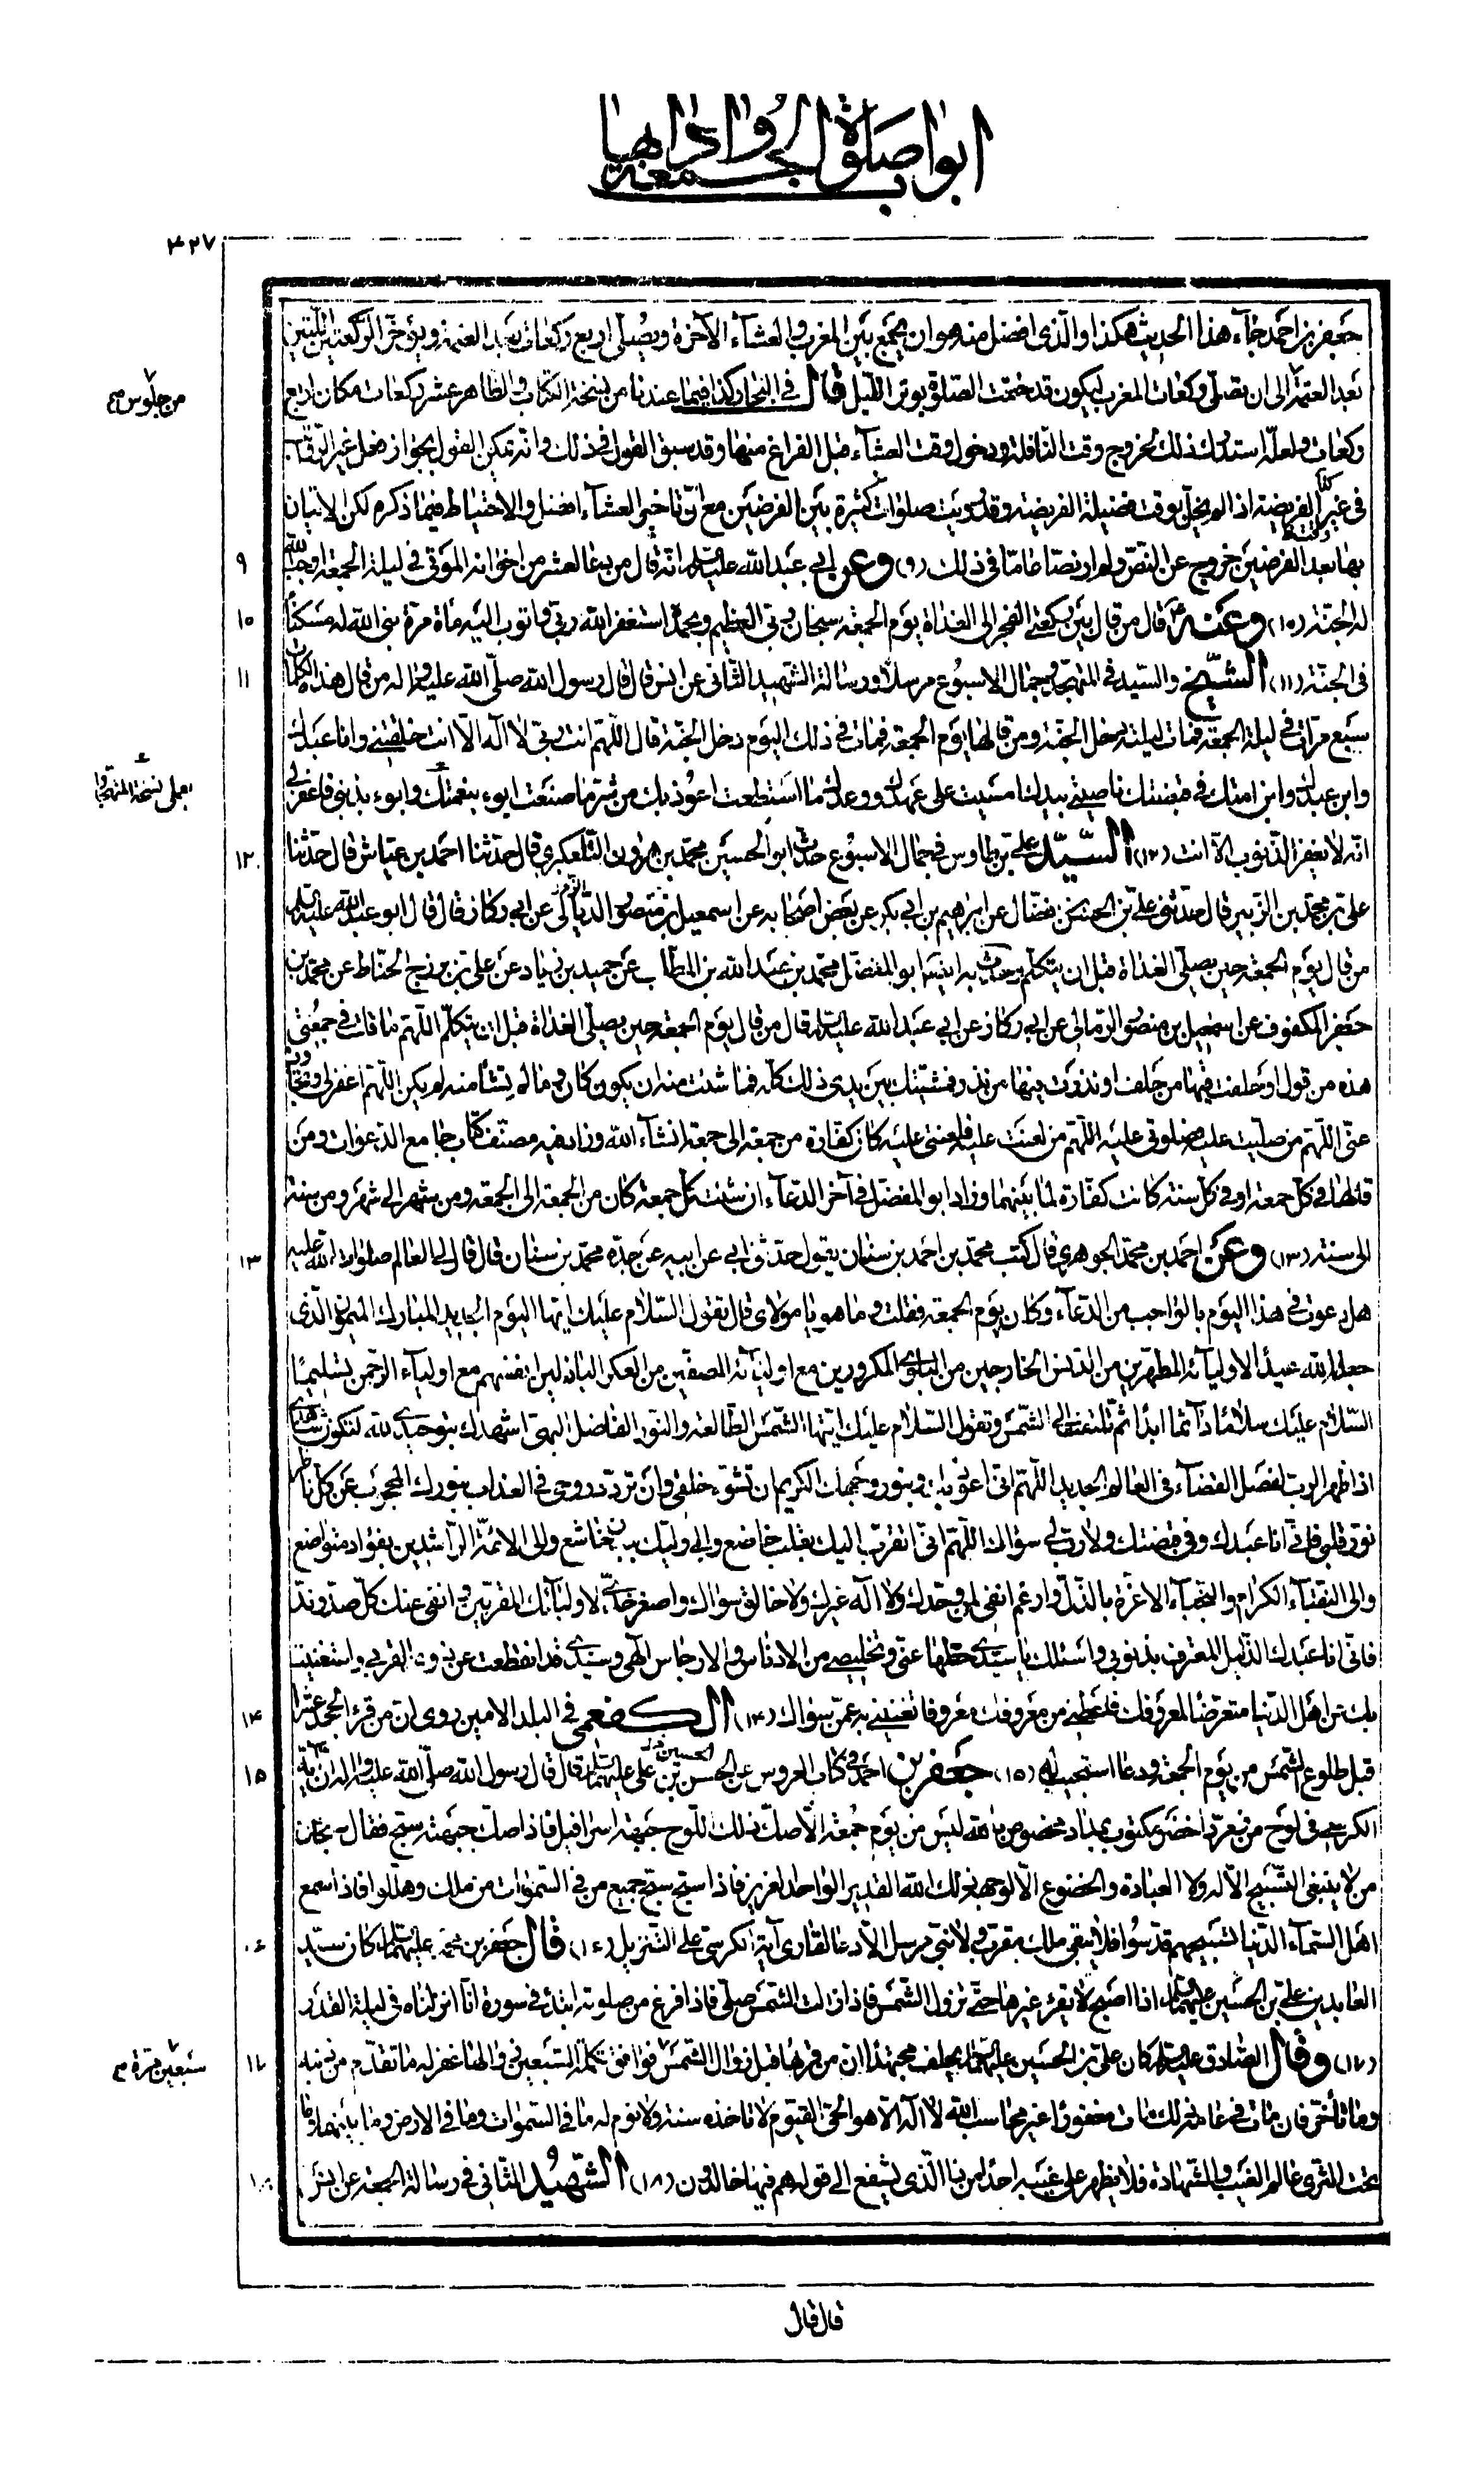 ابواب صلوة الجمعة وادابها
۴۲۷
جعفر بن احمد جاء هذا الحديث هكذا والذى افضل منه هو ان يجمع بين المغرب والعشاء الآخرة ويصلى اربع ركعات بعد العتمة ويؤخر الركعتين اللتين
بعد العتمة الى ان يصلى ركعات المغرب ليكون قد ختمت الصلوة بوتر الليل قال فى البحار كذا فيما عندنا من نسخة الكتاب والظاهر عشر ركعات مكان اربع
من جلوس صح
ركعات ولعله استدرك ذلك لخروج وقت النافلة ودخول وقت العشاء قبل الفراغ منها وقد سبق القول فى ذلك وانه يمكن القول بجواز فعل غير الرواتب
فى غير الفريضة اذا لم يخل بوقت فضيلة الفريضة وقد رويت صلوات كثيرة بين الفرضين مع ان تاخير العشاء افضل والاحتياط فيما ذكره لكن الاتيان
بها بعد الفرضين خروج عن النص ولم ار نصا عاما فى ذلك (۹) وعن ابى عبد الله عليه السلام انه قال من دعا لعشر من اخوانه الموتى فى ليلة الجمعة اوجب الله
۹
له الجنة (۱۰) وعنه ع قال من قال بين ركعتى الفجر الى الغداة يوم الجمعة سبحان ربى العظيم وبحمده استغفر الله ربى واتوب اليه ماة مرة بنى الله له مسكنا
۱۰
فى الجنة (۱۱) الشيخ والسيد فى المتهجد وجمال الاسبوع مرسلا ورسالة الشهيد الثانى عن انس قال قال رسول الله صلى الله عليه واله من قال هذه الكلمات
۱۱
سبع مرات فى ليلة الجمعة فمات ليلته دخل الجنة ومن قالها يوم الجمعة فمات فى ذلك اليوم دخل الجنة قال اللهم انت ربى لا اله الا انت خلقتنى وانا عبدك
وابن عبدك وابن امتك فى قبضتك ناصيتى بيدك امسيت على عهدك ووعدك ما استطعت اعوذ بك من شر ما صنعت ابوء بنعمتك وابوء بذنبى فاغفر لى
انه لا يغفر الذنوب الا انت (۱۲) السيد على بن طاوس فى جمال الاسبوع حدث ابو الحسين محمد بن هرون التلعكبرى قال حدثنا احمد بن عياش قال حدثنا
۱۲
على بن محمد بن الزبير قال حدثنى على بن الحسن بن فضال عن ابراهيم بن ابى بكر عن بعض اصحابه عن اسمعيل بن منصور الزبالى عن ابى ركاز قال قال ابو عبد الله عليه السلام
من قال يوم الجمعة حين يصلى الغداة قبل ان يتكلم وحدث به ايضا ابو المفضل محمد بن عبد الله بن المطلب عن حميد بن زياد عن على بن بزرج الحناط عن محمد بن
جعفر المكفوف عن اسمعيل بن منصور الزبالى عن ابى ركاز عن ابى عبد الله عليه السلام قال من قال يوم الجمعة حين يصلى الغداة قبل ان يتكلم اللهم ما قلت فى جمعتى
هذه من قول او حلفت فيها من حلف او نذرت فيها من نذر فمشيتك بين يدى ذلك كله فما شئت منه ان يكون كان وما لم تشأ منه لم يكن اللهم اغفر لى وتجاوز
عنى اللهم من صليت عليه فصلوتى عليه اللهم من لعنت عليه فلعنتى عليه كان كفارة من جمعة الى جمعة انشاء الله وزاد فيه مصنف كتاب جامع الدعوات ومن
قالها فى كل جمعة او فى كل سنة كانت كفارة لما بينهما وزاد ابو المفضل فى آخر الدعاء ان شئت كل جمعة كان من الجمعة الى الجمعة ومن شهر الى شهر ومن سنة
الى سنة (۱۳) وعن احمد بن محمد الجوهرى قال كتب محمد بن احمد بن سنان يقول حدثنى ابى عن ابيه عن جده محمد بن سنان قال قال لى العالم صلوات الله عليه
۱۳
هل دعوت فى هذا اليوم بالواجب من الدعاء وكان يوم الجمعة فقلت وما هو يا مولاى قال تقول السلام عليك ايها اليوم الجديد المبارك الذى
جعله الله عيدا لاوليائه المطهرين من الدنس الخارجين من البلوى المكرورين مع اوليائه المصفين من العكر الباذلين انفسهم مع اولياء الرحمن تسليما
السلام عليك سلاما دائما ابدا ثم تلتفت الى الشمس وتقول السلام عليك ايتها الشمس الطالعة والنور الفاضل البهى اشهدك بتوحيدى لله لتكون شاهدى
اذا ظهر الرب لفصل القضاء فى العالم الجديد اللهم انى اعوذ بك وبنور وجهك الكريم ان تشوه خلقى وان تردد روحى فى العذاب بنورك المحجوب عن كل ناظر
نور قلبى فانى انا عبدك وفى قبضتك ولا رب لى سواك اللهم انى اتقرب اليك بقلب خاضع والى وليك ببدن خاشع والى الائمة الراشدين بفؤاد متواضع
والى النقباء الكرام والنجباء الاعزة بالذل وارغم انفى لمن وحدك ولا اله غيرك ولا خالق سواك واصغر خدى لاوليائك المقربين وانفى عنك كل ضد وند
فانى انا عبدك الذليل المعترف بذنوبى واسئلك يا سيدى حطها عنى وتخليصى من الادناس والارجاس الهى وسيدى قد انقطعت عن ذوى القربى واستغنيت
بك عن اهل الدنيا متعرضا لمعروفك فاعطنى من معروفك معروفا تغنينى به عمن سواك (۱۴) الكفعمى فى البلد الامين روى ان من قرء الجحد عشرا
۱۴
قبل طلوع الشمس من يوم الجمعة ودعا استجيب له (۱۵) جعفر بن احمد فى كتاب العروس عن الحسن بن على عليهما السلام قال قال رسول الله صلى الله عليه واله ان آية
۱۵
الكرسى فى لوح من زمرد اخضر مكتوب بمداد مخصوص بالله ليس من يوم جمعة الا صك ذلك اللوح جبهة اسرافيل فاذا صك جبهته سبح فقال سبحان
من لا ينبغى التسبيح الا له ولا العبادة والخضوع الا لوجهه ذلك الله القدير الواحد العزيز فاذا سبح سبح جميع من فى السموات من ملك وهللوا فاذا سمع
اهل السماء الدنيا تسبيحهم قدسوا فلا يبقى ملك مقرب ولا نبى مرسل الا دعا لقارى آية الكرسى على التنزيل (۱۶) قال جعفر بن محمد عليهما السلام كان سيد
العابدين على بن الحسين عليهما السلام اذا اصبح لا يقرء غيرها حتى تزول الشمس فاذا زالت الشمس صلى فاذا فرغ من صلوته ابتدء فى سورة انا انزلناه فى ليلة القدر
(۱۷) وقال الصادق عليه السلام كان على بن الحسين عليهما السلام يحلف مجتهدا ان من قرءها قبل زوال الشمس فوافق تكملة السبعين زوالها غفر له ما تقدم من ذنبه
۱۷
سبعين مرة صح
وما تأخر فان مات فى عامه ذلك مات مغفورا غير محاسب الله لا اله الا هو الحى القيوم لا تاخذه سنة ولا نوم له ما فى السموات وما فى الارض وما بينهما وما
تحت الثرى عالم الغيب والشهادة فلا يظهر على غيبه احدا من ذا الذى يشفع الى قوله هم فيها خالدون (۱۸) الشهيد الثانى فى رسالة الجمعة عن انس
قال قال